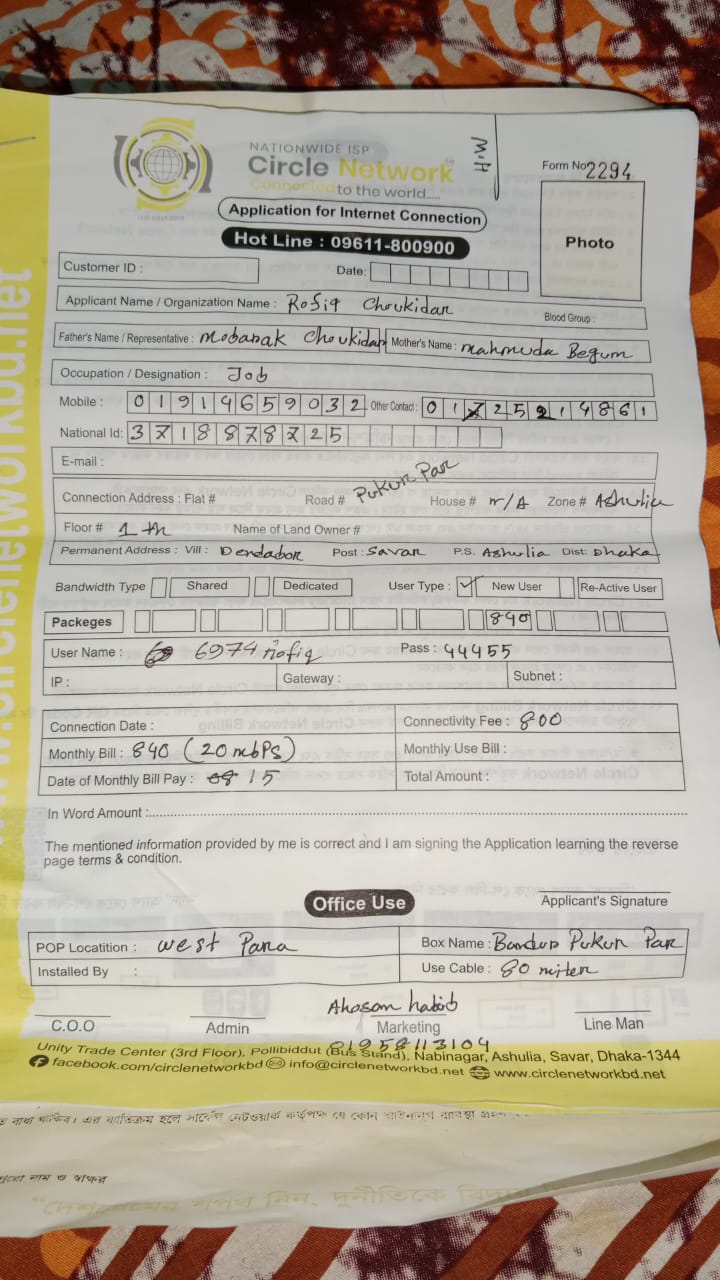 M.H
NATIONWIDE ISP
Circle Network
Connected to the world.....
ISO 9001:2015
Form No 2294
Photo
Application for Internet Connection
Hot Line : 09611-800900
Customer ID :
Date:
Applicant Name / Organization Name : Rofiq Choukidar
Blood Group :
Father's Name / Representative : Mobarak Choukidar Mother's Name : Mahmuda Begum
Occupation / Designation : Job
Mobile : 01914659032 Other Contact : 01725214861
National Id: 3718878225
E-mail :
Connection Address : Flat # Road # Pukur Par House # n/A Zone # Ashulia
Floor # 1 th Name of Land Owner #
Permanent Address : Vill : Dendabor Post : Savar P.S. Ashulia Dist: Dhaka
Bandwidth Type Shared Dedicated User Type : ✓ New User Re-Active User
Packeges 840
User Name : 6974 rofiq Pass : 44455
IP : Gateway : Subnet :
Connection Date : Connectivity Fee : 800
Monthly Bill : 840 (20 mbPS) Monthly Use Bill :
Date of Monthly Bill Pay : 15 Total Amount :
In Word Amount :
The mentioned information provided by me is correct and I am signing the Application learning the reverse
page terms & condition.
Applicant's Signature
Office Use
POP Locatition : west Para Box Name : Bandup Pukur Par
Installed By : Use Cable : 80 miter
Ahosan habib
C.O.O Admin Marketing Line Man
01958113104
Unity Trade Center (3rd Floor), Pollibiddut (Bus Stand), Nabinagar, Ashulia, Savar, Dhaka-1344
facebook.com/circlenetworkbd info@circlenetworkbd.net www.circlenetworkbd.net
www.circlenetworkbd.net
বাধ্য থাকিব। এর ব্যতিক্রম হলে সার্কেল নেটওয়ার্ক কর্তৃপক্ষ যে কোন আইনানুগ ব্যবস্থা
নাম ও স্বাক্ষর